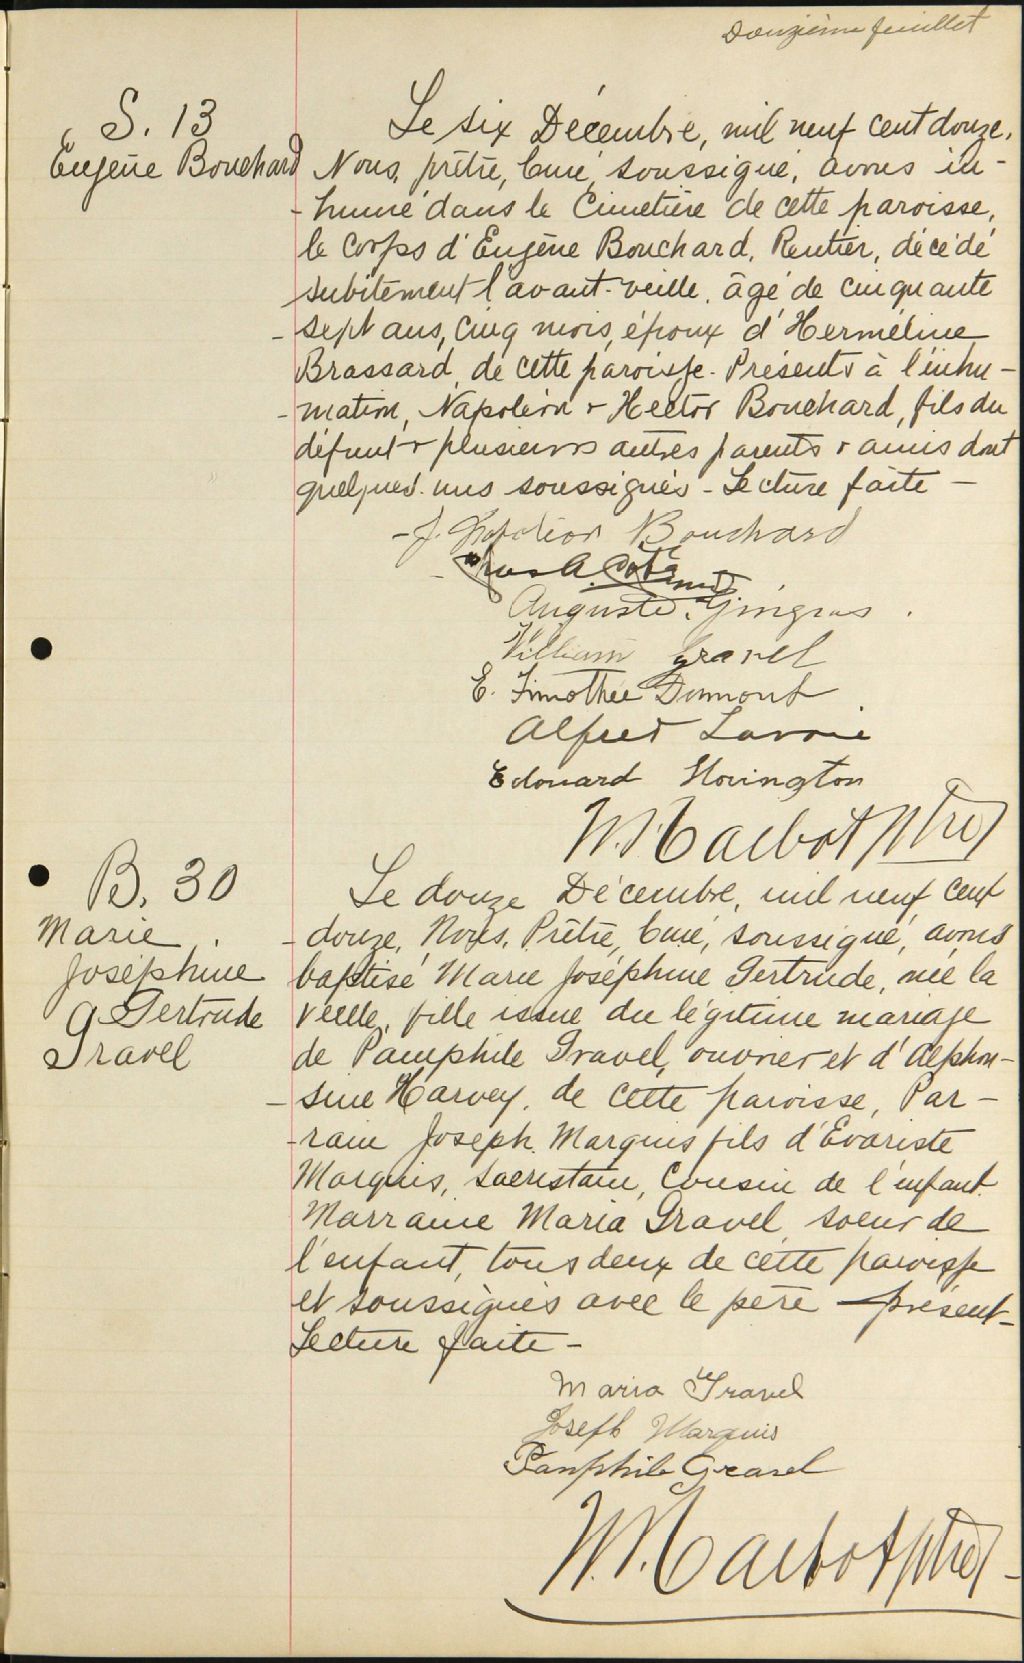 Douzième feuillet
S. 13
Eugène Bouchard
Le six Décembre, mil neuf cent douze,
Nous, prêtre, Curé, soussigné, avons in-
-humé dans le Cimetière de cette paroisse,
le corps d'Eugène Bouchard, Rentier, décédé
subitement l'avant-veille, âgé de cinquante
-sept ans, cinq mois, époux d'Herméline
Brassard, de cette paroisse. Présents à l'inhu-
-mation, Napoléon & Hector Bouchard, fils du
défunt & plusieurs autres parents & amis dont
quelques-uns soussignés - Lecture faite -
J. Bouchard
Côté
Auguste Gingras
William Gravel
E. Timothée Dumont
Alfred Lavoie
Edouard Hovington
W. Talbot ptre
B. 30
Marie
Joséphine
Gertrude
Gravel
Le douze Décembre, mil neuf cent
-douze, Nous, Prêtre, Curé, soussigné, avons
baptisé Marie Joséphine Gertrude, née la
veille, fille issue du légitime mariage
de Pamphile Gravel, ouvrier et d'Alphon-
-sine Harvey, de cette paroisse, Par-
-rain Joseph Marquis fils d'Evariste
Marquis, sacristain, Cousin de l'enfant.
Marraine Maria Gravel, soeur de
l'enfant, tous deux de cette paroisse
et soussignés avec le père présent-
Lecture faite -
Maria Gravel
Joseph Marquis
Pamphile Gravel
W. Talbot ptre